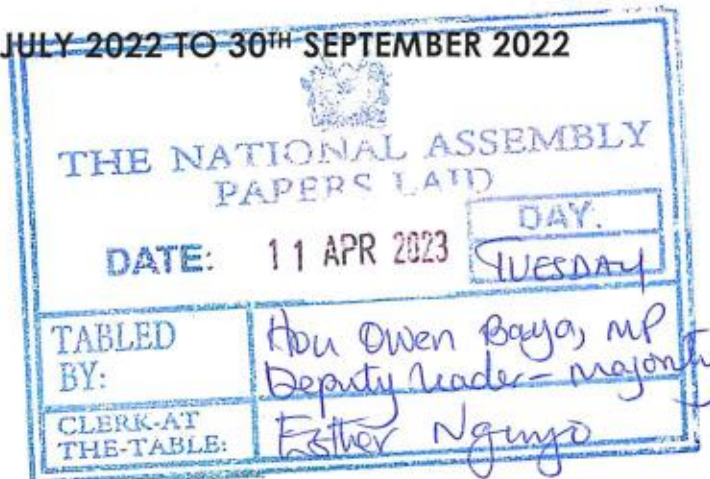 JULY 2022 TO 30TH SEPTEMBER 2022
THE NATIONAL ASSEMBLY
PAPERS LAID
DATE: 11 APR 2023
DAY.
TUESDAY
TABLED BY:
Hon Owen Baya, MP
Deputy Leader - Majority
CLERK-AT THE-TABLE:
Esther Nginyo